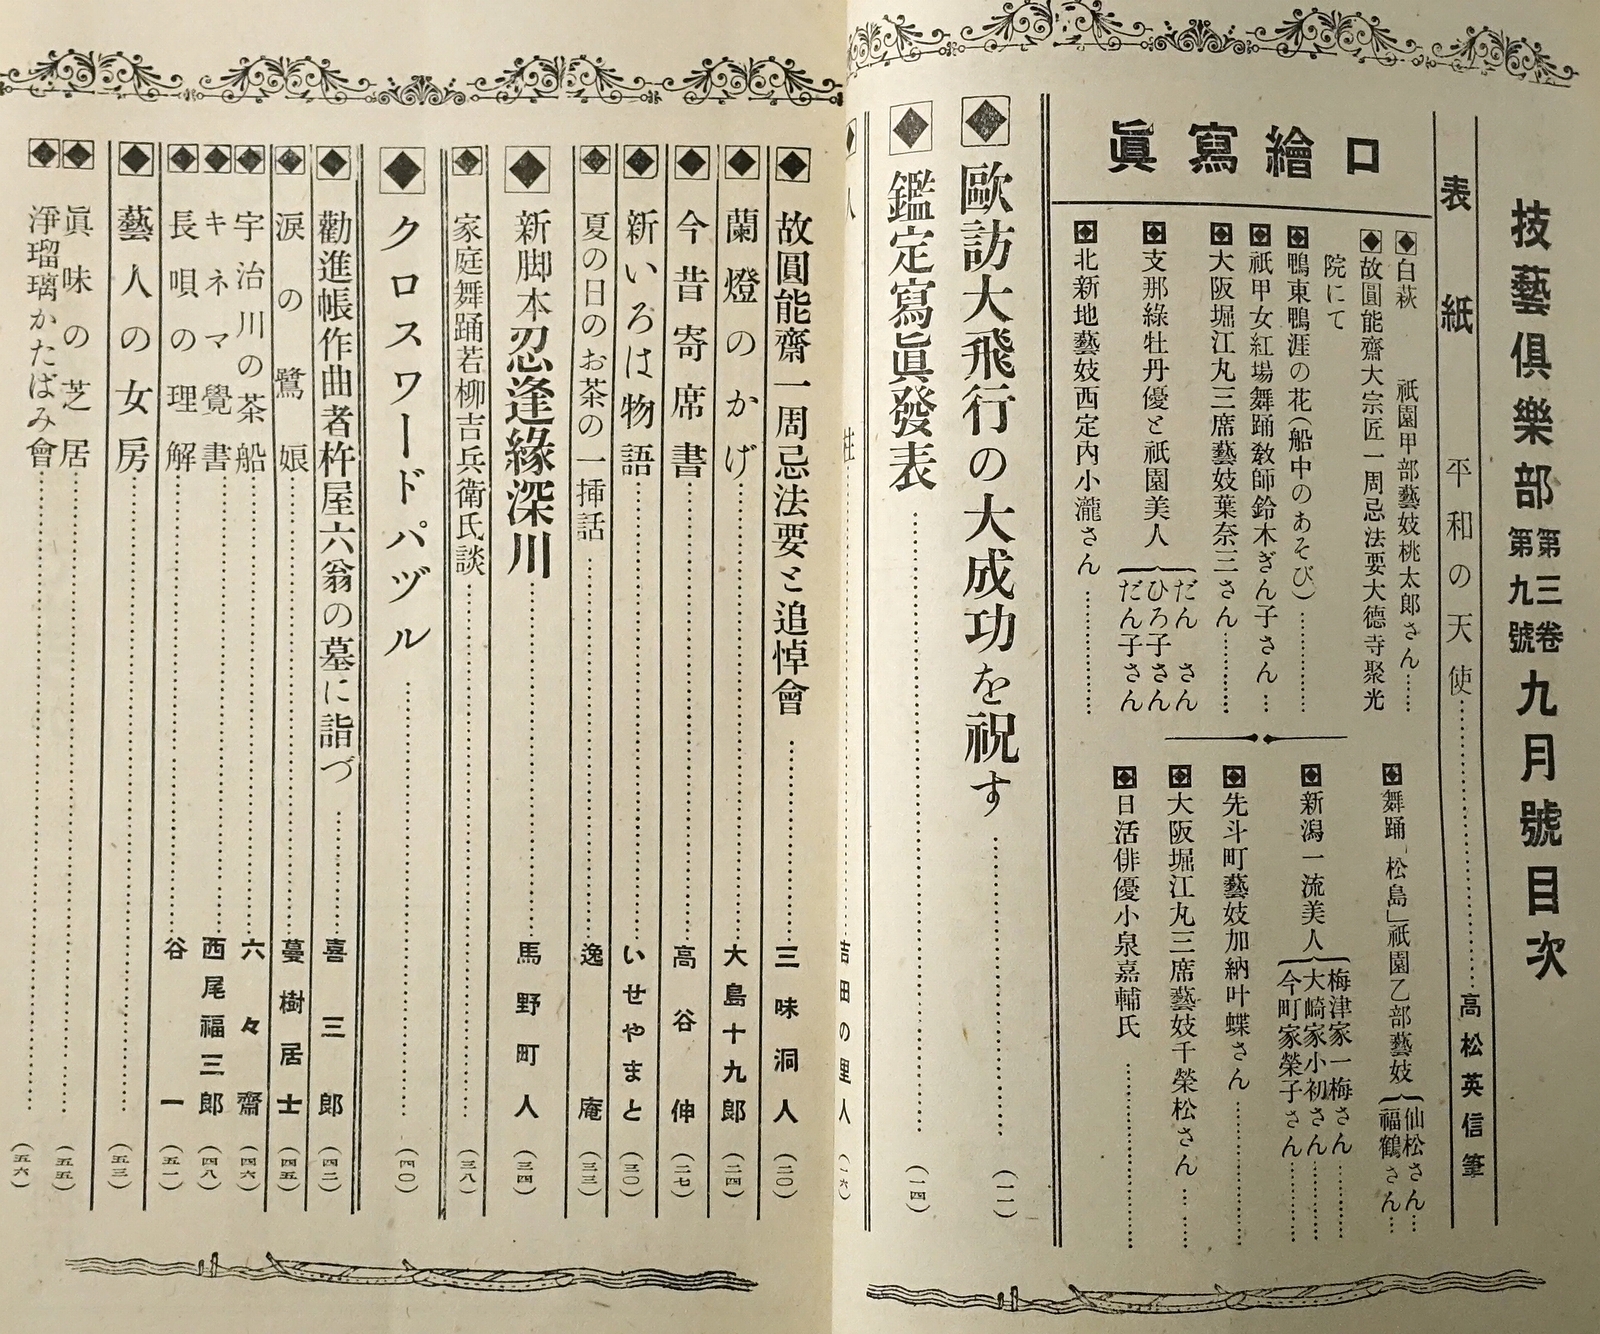 技藝倶樂部 第三卷 第九號 九月號目次
表紙 平和の天使 高松英信筆
口繪寫眞
白萩 祇園甲部藝妓桃太郎さん
故圓能齋大宗匠一周忌法要大德寺聚光
院にて
鴨東鴨涯の花(船中のあそび)
祇甲女紅場舞踊教師鈴木ぎん子さん
大阪堀江丸三席藝妓葉奈三さん
支那綠牡丹優と祇園美人 だんさん ひろ子さん だん子さん
北新地藝妓西定内小瀧さん
舞踊「松島」祇園乙部藝妓 仙松さん 福鶴さん
新潟一流美人 梅津家一梅さん 大崎家小初さん 今町家榮子さん
先斗町藝妓加納叶蝶さん
大阪堀江丸三席藝妓千榮松さん
日活俳優小泉嘉輔氏
歐訪大飛行の大成功を祝す (一一)
鑑定寫眞發表 (一四)
人 吉田の里人 (一六)
故圓能齋一周忌法要と追悼會 三味洞人 (二〇)
蘭燈のかげ 大島十九郎 (二四)
今昔寄席書 高谷伸 (二七)
新いろは物語 いせやまと (三〇)
夏の日のお茶の一挿話 逸庵 (三三)
新脚本 忍逢緣深川 馬野町人 (三四)
家庭舞踊若柳吉兵衛氏談 (三八)
クロスワードパヅル (四〇)
勸進帳作曲者杵屋六翁の墓に詣づ 喜三郎 (四二)
涙の鷺娘 蔓樹居士 (四五)
宇治川の茶船 六々齋 (四六)
キネマ覺書 西尾福三郎 (四八)
長唄の理解 谷一 (五一)
藝人の女房 (五三)
眞味の芝居 (五五)
淨瑠璃かたばみ會 (五六)